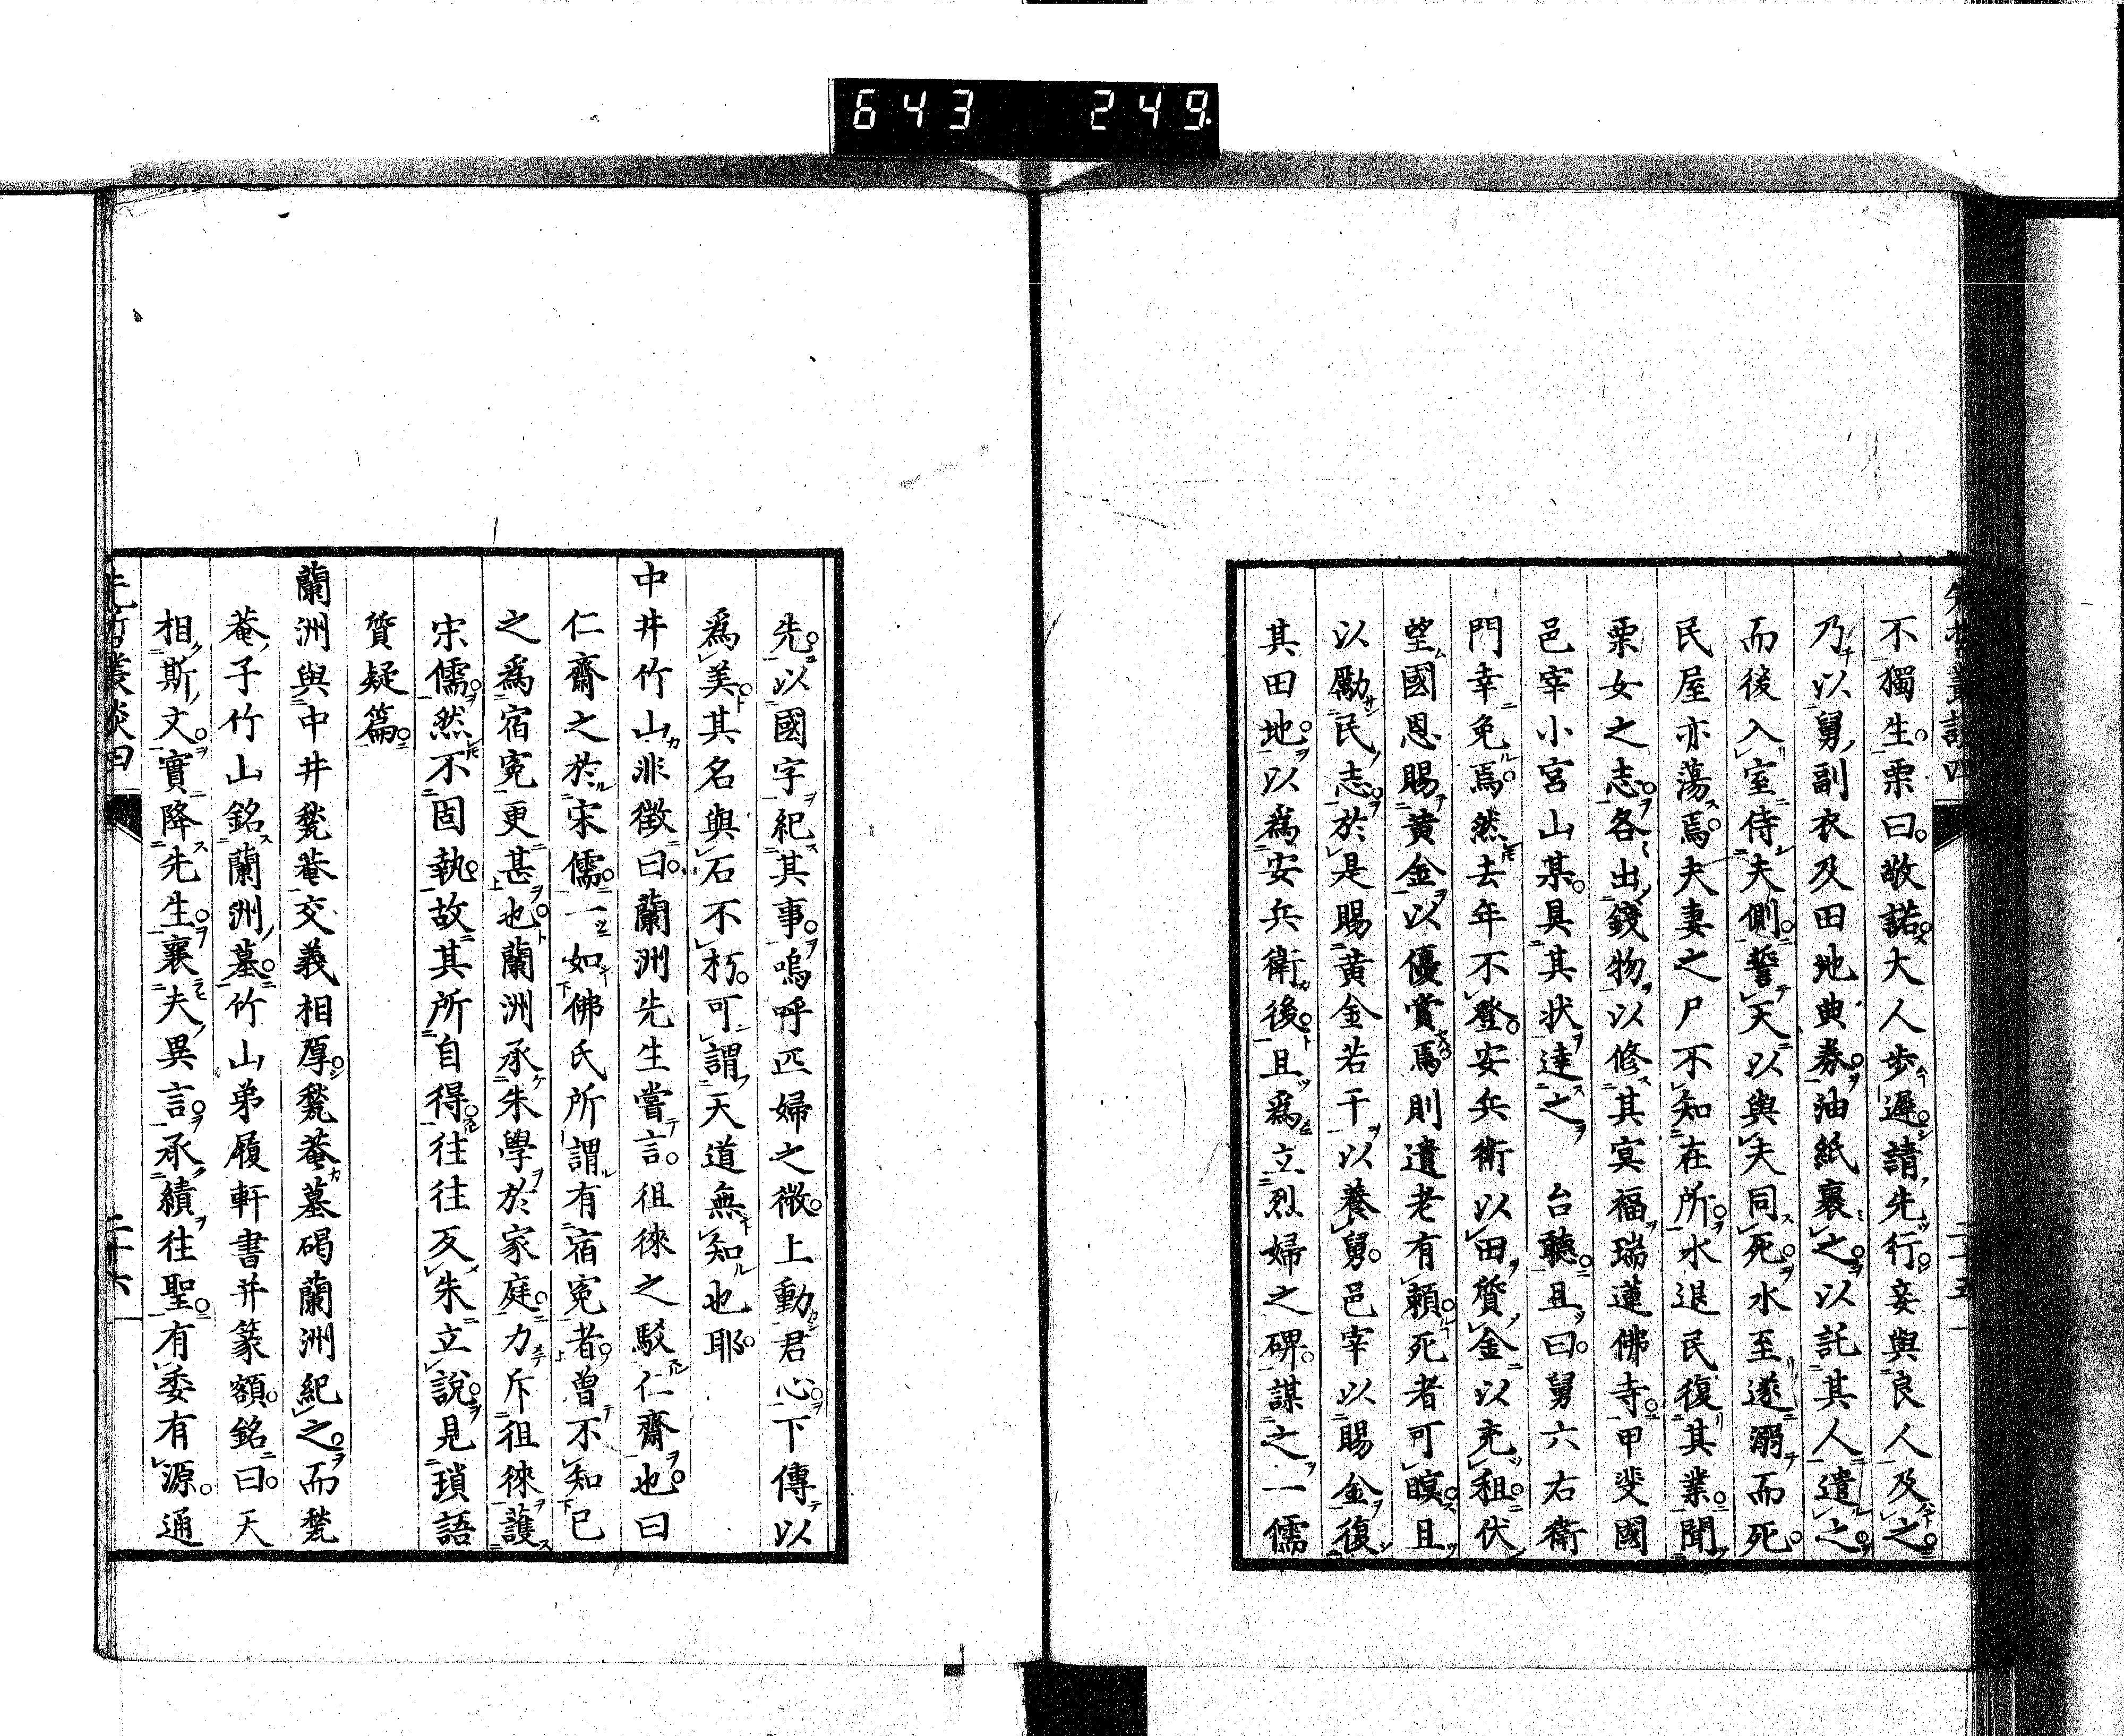 643 249
不獨生栗曰敬諾大人歩遲請先行妾與良人及之
乃以舅副衣及田地典券油紙裹之以託其人遣之
而後入室侍夫側誓天以與夫同死水至遂溺而死
民屋亦蕩焉夫妻之尸不知在所水退民復其業聞
栗女之志各出錢物以修其冥福瑞蓮佛寺甲斐國
邑宰小宮山某具其狀達之　台聽且曰舅六右衛
門幸免焉然去年不登安兵衛以田質金以充租伏
望國恩賜黃金以優賞焉則遺老有頼死者可瞑且
以勵民志於是賜黃金若干以養舅邑宰以賜金復
其田地以為安兵衛後且為立烈婦之碑謀之一儒
先以國字紀其事嗚呼匹婦之微上動君心下傳以
爲美其名與石不朽可謂天道無知也耶
中井竹山非徴曰蘭洲先生嘗言徂徠之駁仁齋也曰
仁齋之於宋儒一如佛氏所謂有宿寃者曽不知已
之爲宿寃更甚也蘭洲承朱學於家庭力斥徂徠護
宋儒然不固執故其所自得往往反朱立說見瑣語
質疑篇
蘭洲與中井甃菴交義相厚甃菴墓碣蘭洲紀之而甃
菴子竹山銘蘭洲墓竹山弟履軒書并篆額銘曰天
相斯文實降先生襄夫異言承績往聖有委有源通
先哲叢談四
二十六